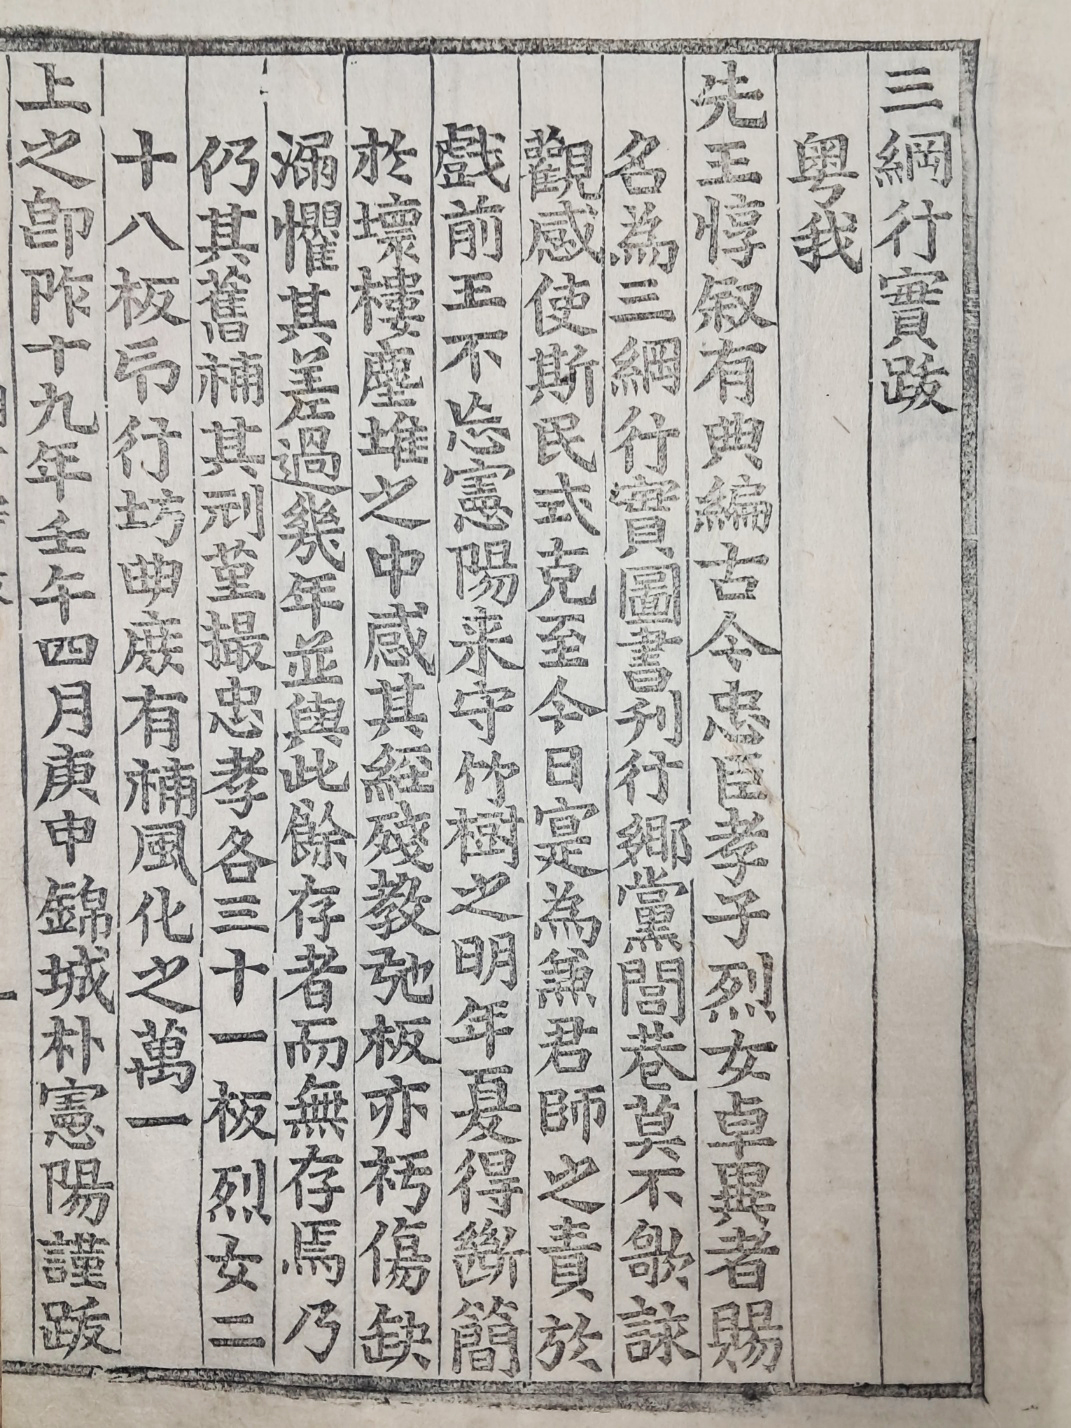 三綱行實跋
粤我
先王惇敘有典編古今忠臣孝子烈女卓異者賜
名為三綱行實圖書刊行鄉黨閭巷莫不歌詠
觀感使斯民式克至今日寔為兼君師之責於
戲前王不忘憲陽来守竹樹之明年夏得斷簡
於壞樓塵堆之中感其經殘教弛板亦朽傷缺
溺懼其差過幾年並與此餘存者而無存焉乃
仍其舊補其刓菫撮忠孝各三十一板烈女二
十八板印行坊曲庶有補風化之萬一
上之卽阼十九年壬午四月庚申錦城朴憲陽謹跋
一